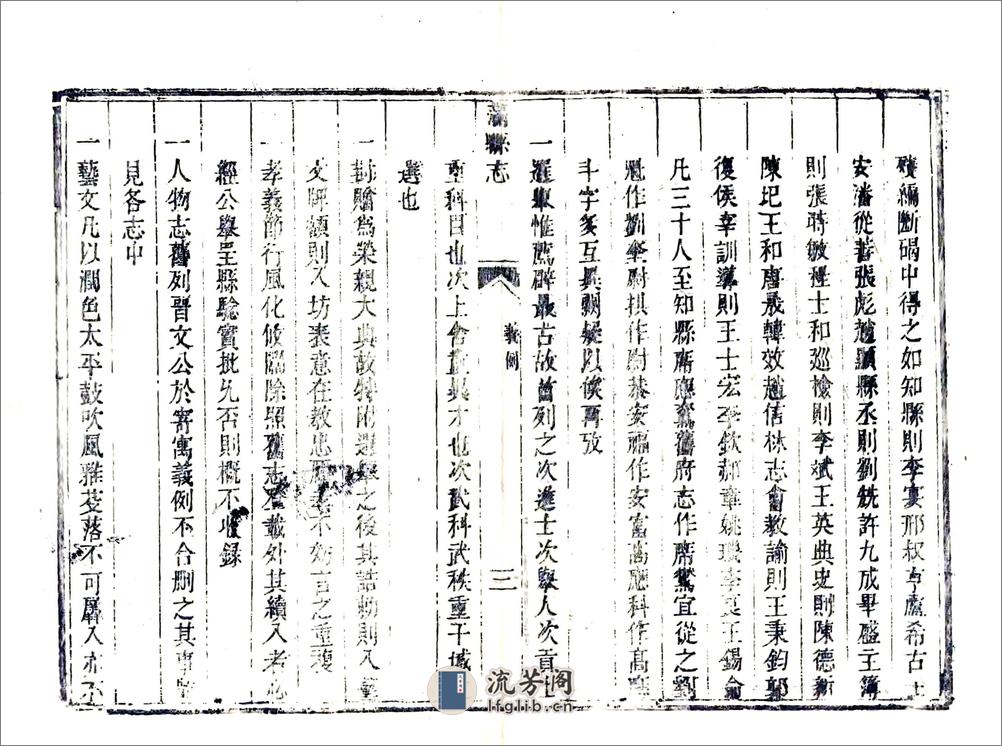 殘編斷碣中得之如知縣則李宴邢叔亨盧希古
安潘從善張彪趙顯縣丞則劉銑許九成畢盛主簿
則張時敏程士和巡檢則李斌王英典史則陳德新
陳圯王和唐晟韓效趙信林志會教諭則王秉鈞郭
復侯宰訓導則王士宏李欽郝章姚璣李王錫俞
凡三十人至知縣席應鴛舊府志作席鴛宜從之劉
作劉奎尉棋作尉恭安福作安富萬應科作高
斗字多互異闕疑以俟再攷
一選舉惟薦辟最古故首列之次進士次舉人次貢士
重科目也次上舍重異才也次武科武秩重干城
選也
一封贈為榮親大典故特附選舉之後其誥勅則入藝
文牌額則入坊表意在教忠不妨言之重複
一孝義節行風化攸關除照舊志所載外其續入者必
經公舉呈縣驗實批允否則概不收錄
一人物志舊列晉文公於寄寓義例不合刪之其事
見各志中
一藝文凡以潤色太平鼓吹風雅蕪落不可羼入亦不
蒲縣志
義例
三
流芳阁
lfglib.cn